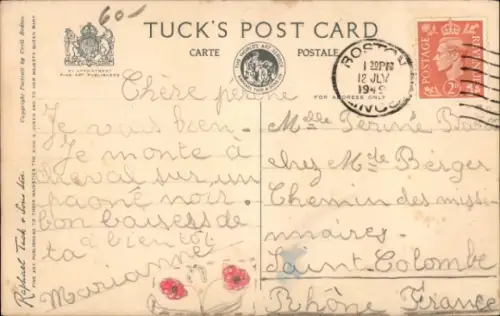 60-
TUCK'S POST CARD
CARTE POSTALE
BY APPOINTMENT
FINE ART PUBLISHERS
FOR ADDRESS ONLY
BOSTON
12 JLY
1949
LINCS
POSTAGE
REVENUE
2D
Copyright Portrait by Cecil Beaton
Raphael Tuck & Sons Ltd.
FINE ART PUBLISHERS TO THEIR MAJESTIES THE KING & QUEEN AND TO HER MAJESTY QUEEN MARY
Chère
Je vais bien.
Je monte à
cheval sur un
noir.
bon baisers de
ta à bientôt
Marianne
Melle
chez Mde Berger
Chemin des missio
nnaires.
Saint Colombe
Rhône France